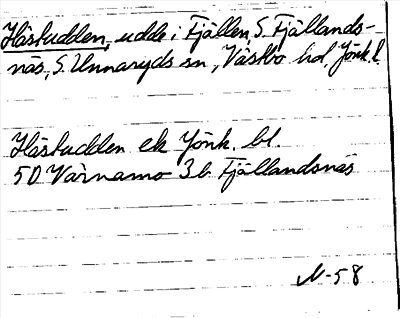 Hästudden, udde i Fjällen, S. Fjällands-
näs, S. Unnaryds sn, Västbo hd, Jönk. l
Hästudden ek Jönk. bl.
5D Värnamo 3b Fjällandsnäs
N-58